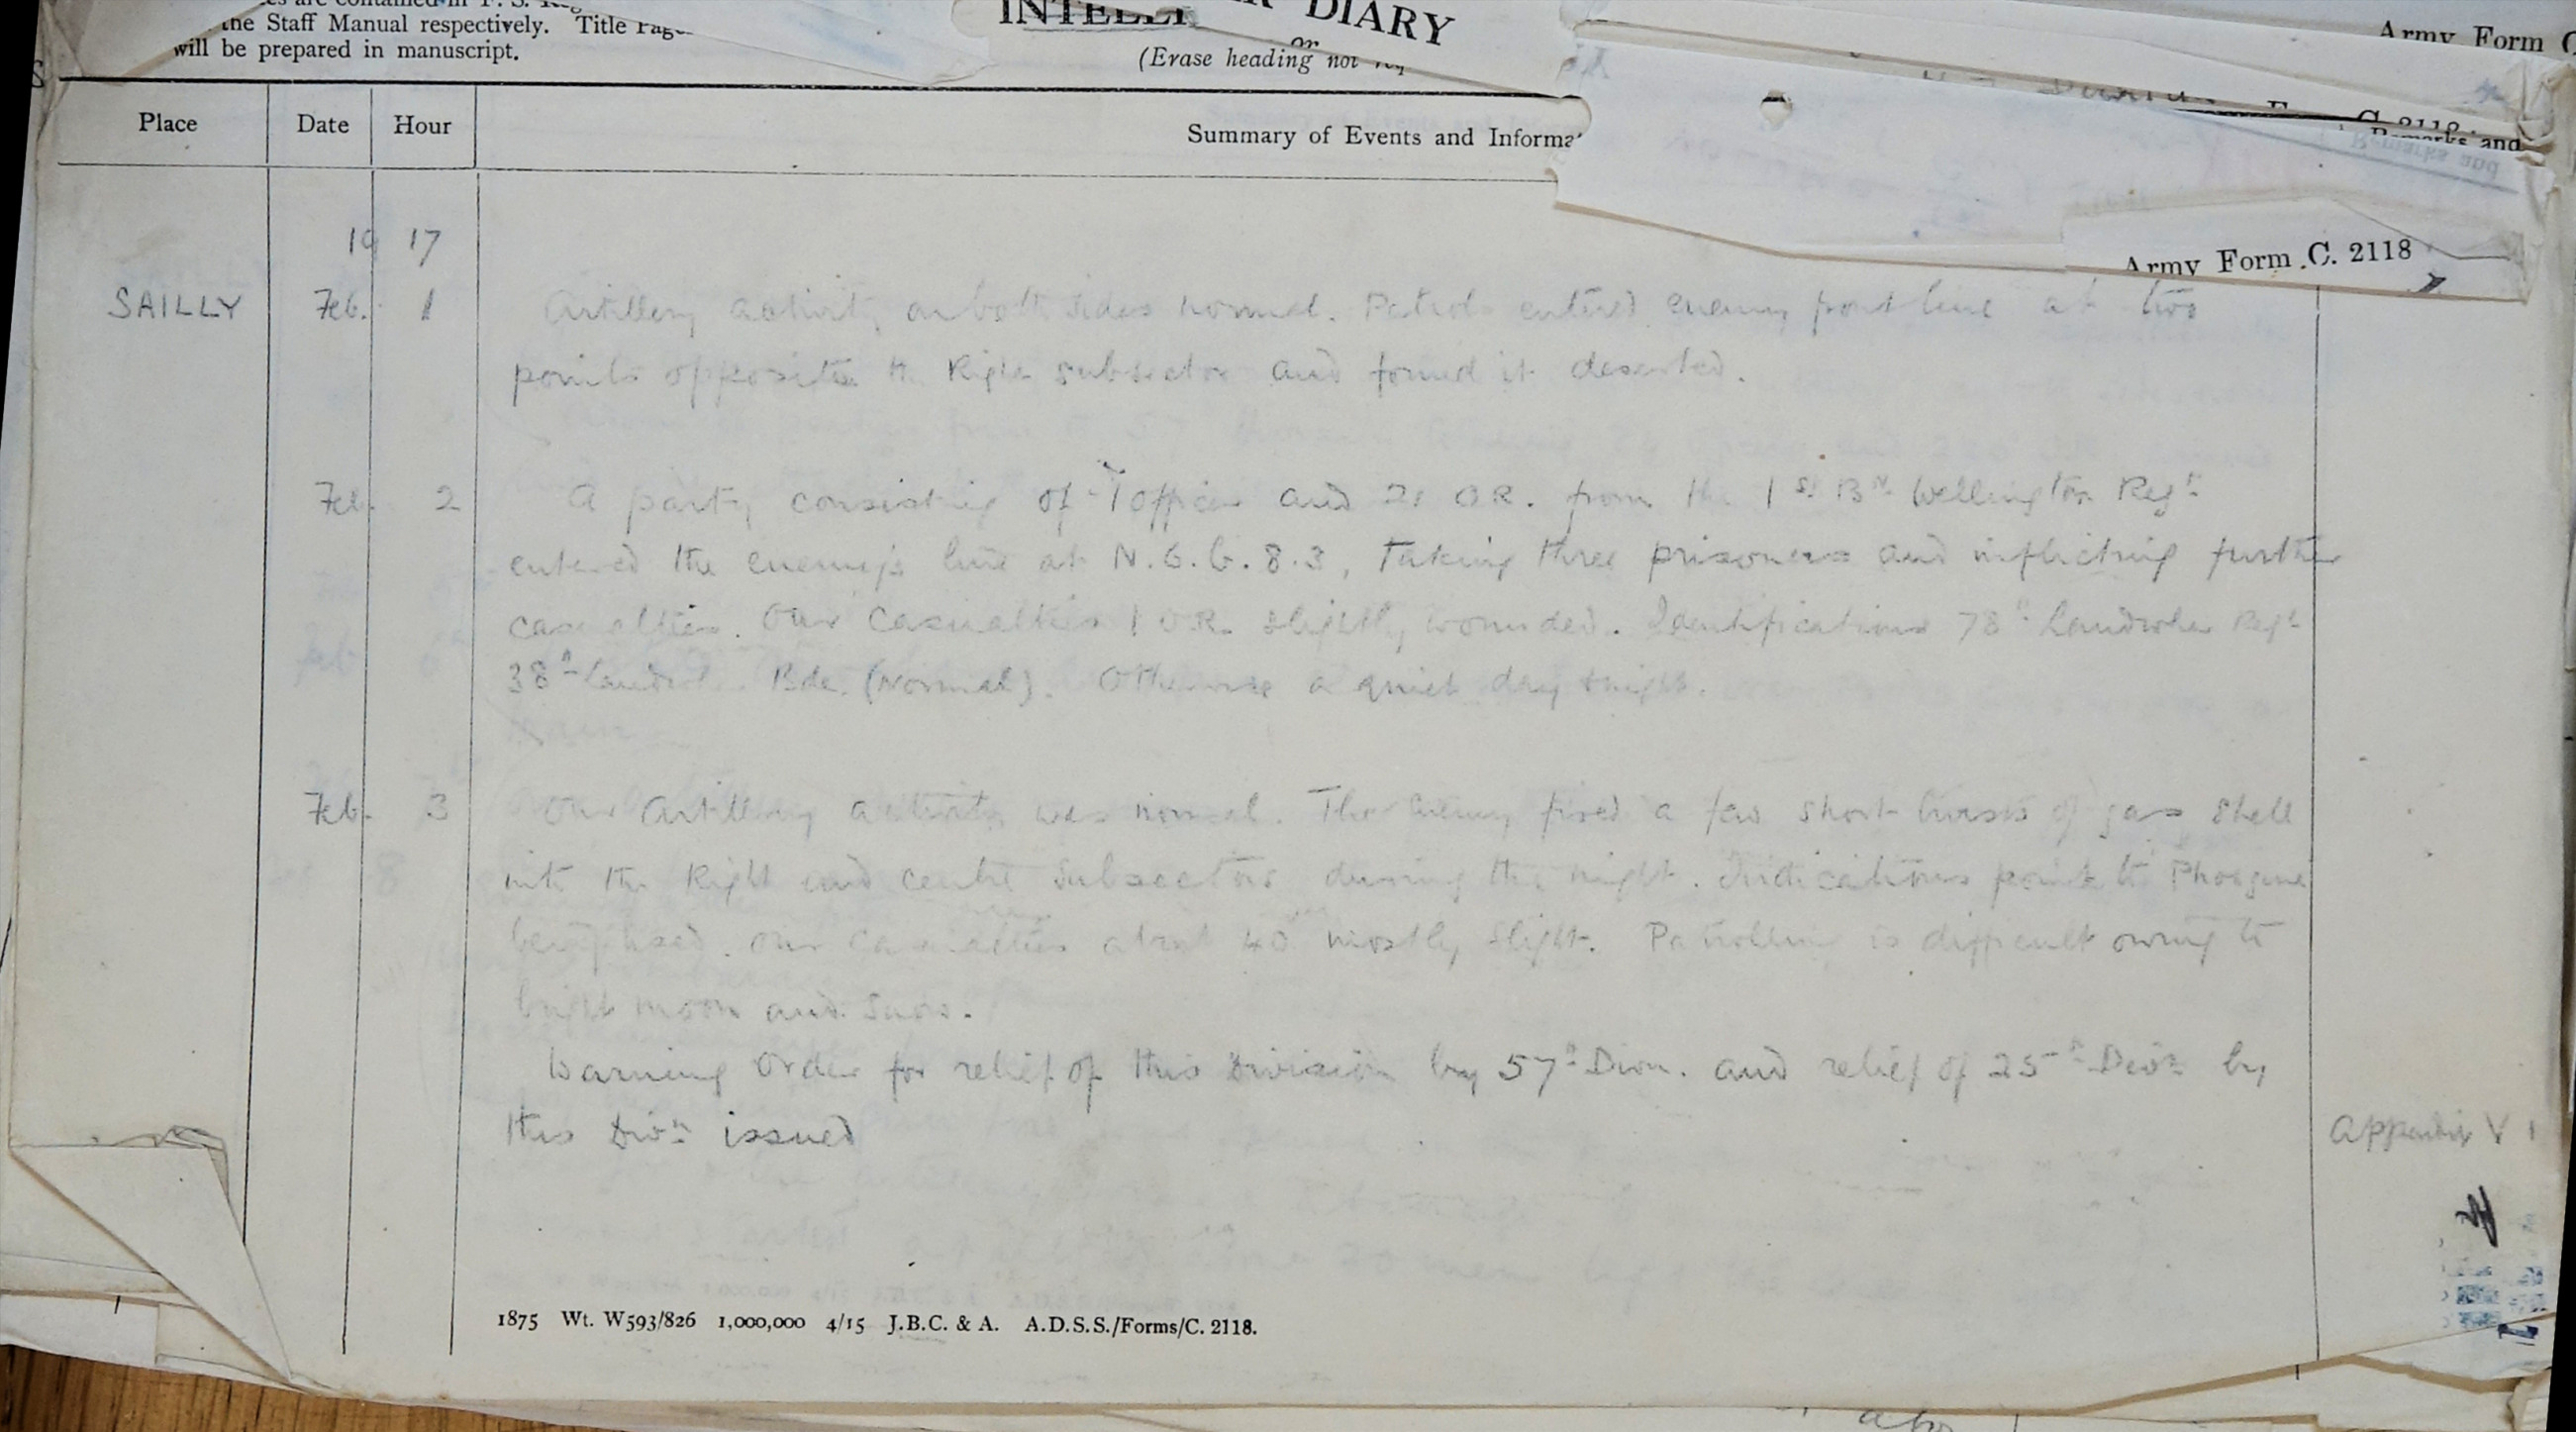 the Staff Manual respectively. Title
will be prepared in manuscript.
DIARY
or
(Erase heading not
Army Form
Remarks and
Place Date Hour Summary of Events and
Army Form C. 2118
19 17
SAILLY Feb. 1 Artillery activity on both sides normal. Patrols entered enemy front line at two
points opposite the Right subsector and found it deserted.
Feb. 2 A party consisting of 1 officer and 21 O.R. from the 1st Bn Wellington Regt
entered the enemy's line at N.6.b.8.3, taking three prisoners and inflicting further
casualties. Our casualties 1 O.R. slightly wounded. Identifications 78th Landwehr Regt
38th Bde. (Normal). Otherwise a quiet day & night.
Feb. 3 Our Artillery activity was normal. The enemy fired a few short bursts of gas shell
into the Right and centre subsectors during the night. Indications point to Phosgene
being used. Our casualties about 40 mostly slight. Patrolling is difficult owing to
bright moon and snow.
Warning Order for relief of this Division by 57th Divn. and relief of 25th Divn by
this Divn issued Appendix V 1
1875 Wt. W593/826 1,000,000 4/15 J.B.C. & A. A.D.S.S./Forms/C. 2118.